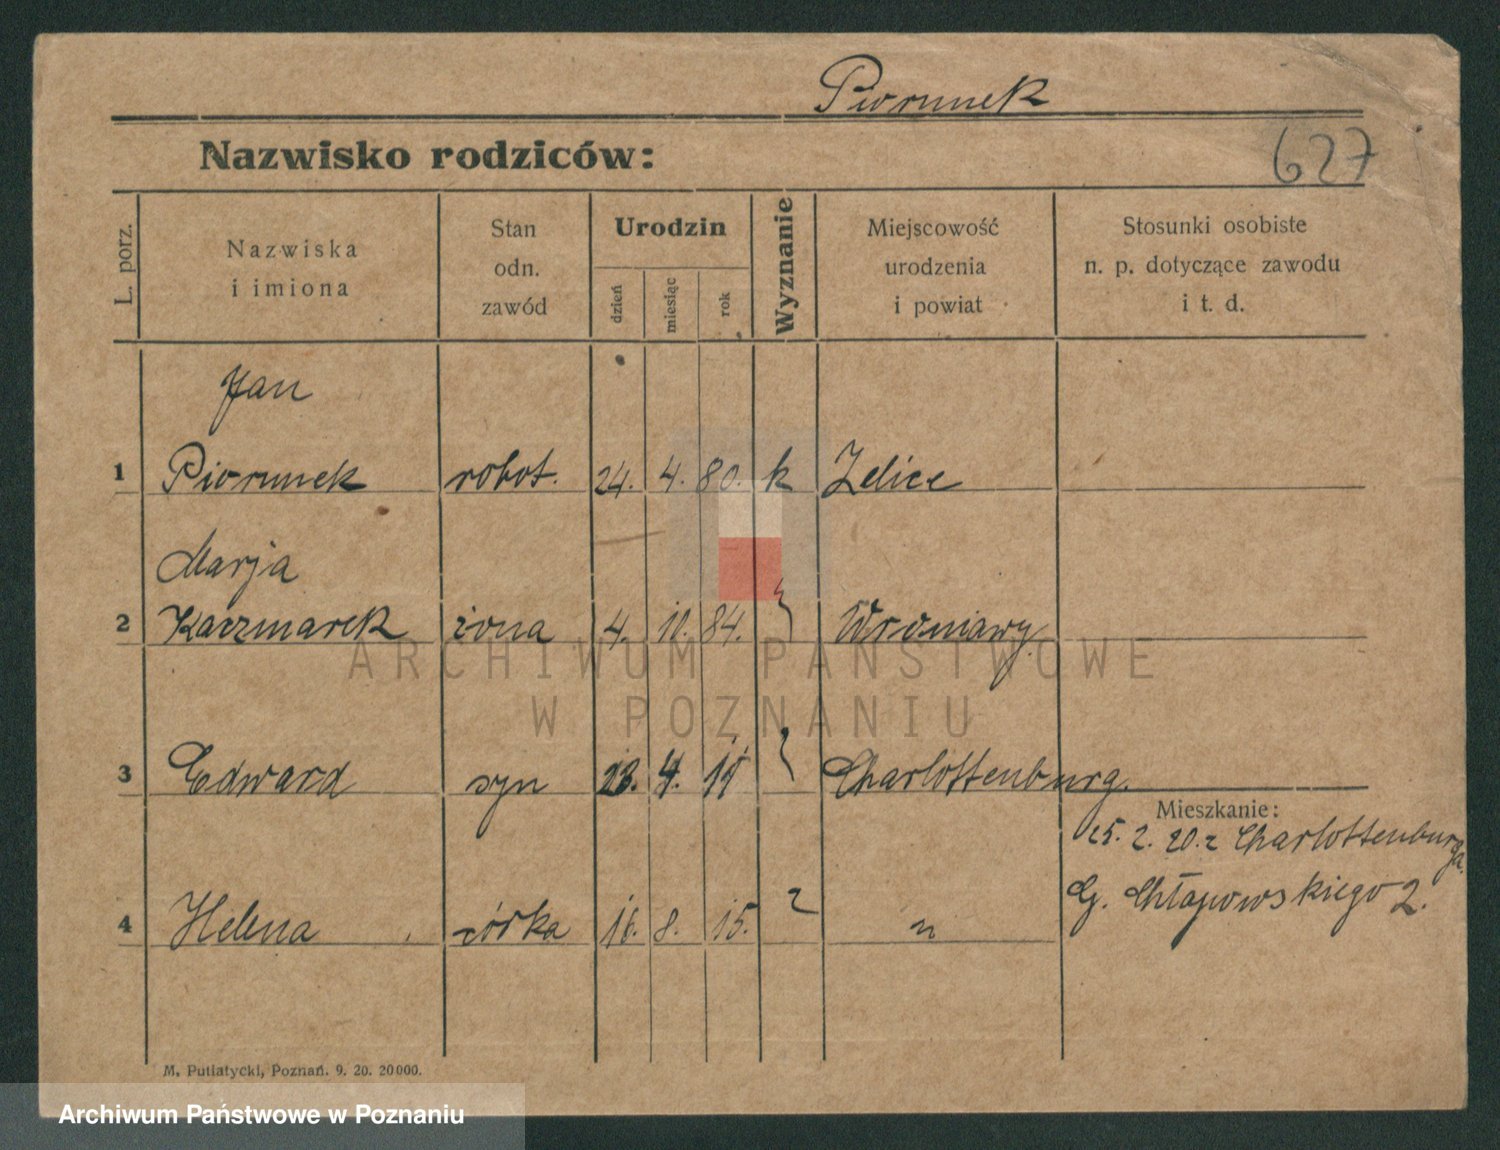 Piorunek
627
Nazwisko rodziców:
L. porz.
Nazwiska
i imiona
Stan
odn.
zawód
Urodzin
dzień
miesiąc
rok
Wyznanie
Miejscowość
urodzenia
i powiat
Stosunki osobiste
n. p. dotyczące zawodu
i t. d.
Jan
1 Piorunek robot. 24. 4. 80. k Zelice
Marja
2 Kaczmarek żona 4. 10. 84. " Wroniawy
3 Edward syn 23. 4. 11 " Charlottenburg.
Mieszkanie:
25. 2. 20. z Charlottenburga.
G. Chłapowskiego 2.
4 Helena córka 16. 8. 15. " "
ARCHIWUM PAŃSTWOWE
W POZNANIU
M. Putiatycki, Poznań. 9. 20. 20000.
Archiwum Państwowe w Poznaniu